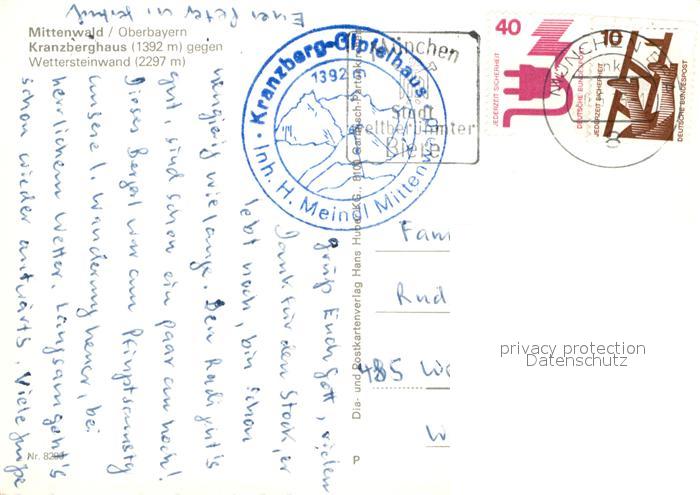 Mittenwald / Oberbayern
Kranzberghaus (1392 m) gegen
Wettersteinwand (2297 m)
Kranzberg-Gipfelhaus
1392 m
Inh. H. Meindl Mittenwald
München
die
Stadt
weltberühmter
Biere
40
JEDERZEIT SICHERHEIT
DEUTSCHE BUNDESPOST
10
JEDERZEIT SICHERHEIT
DEUTSCHE BUNDESPOST
MÜNCHEN
Grüß Euch Gott, vielen
Dank für den Stock, er
lebt noch, bin schon
neugierig wie lange. Den Radi gut's
gut und schon ein paar am hoch!
Dieser Bergerl war am Pfingstsamstag
unsere 1. Wanderung heuer, bei
herrlichem Wetter. Langsam geht's
schon wieder aufwärts. Viele Grüße
Dia- und Postkartenverlag Hans Huber KG., 8100 Garmisch-Partenkirchen
Fam
Rud
485
W
Nr.
P
privacy protection
Datenschutz